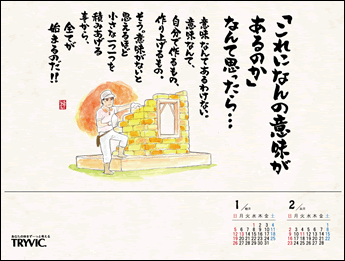 「これになんの意味が
あるのか」
なんて思ったら…
意味なんてあるわけない。
意味なんて、
自分で作るもの、
作り上げるもの。
そう。意味がないと
思えるほど
小さな一つ一つを
積みあげる
事から、
全てが
始まるのだ!!
1/
日 月 火 水 木 金 土
2/
日 月 火 水 木 金 土
TRYVIC